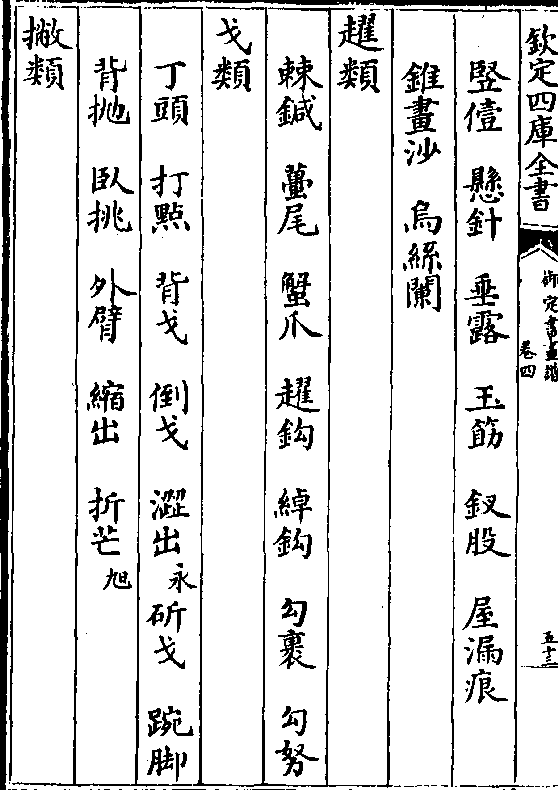 欽定四庫全書
御定書畫譜
卷四
五十三
竪僼 懸針 垂露 玉筯 釵股 屋漏痕
錐畫沙 烏絲闌
趯類
棘鍼 蠆尾 蟹爪 趯鈎 綽鈎 勾裹 勾努
戈類
丁頭 打點 背戈 倒戈 澀出永 斫戈 踠脚
背抛 臥挑 外臂 縮出 折芒旭
撇類